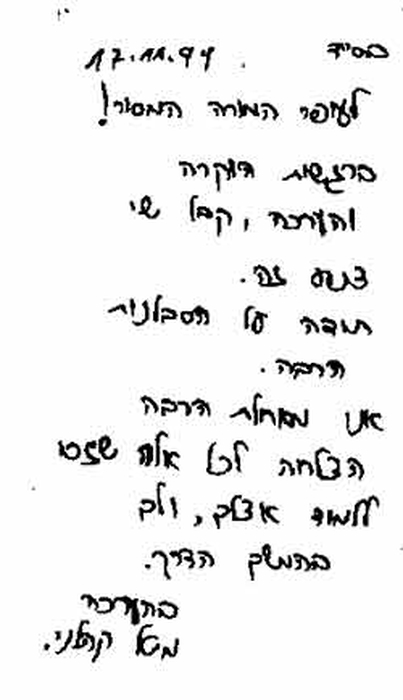 בס״ד 17.11.94
לעופר המורה המסור!
ברגשות הוקרה
והערכה, קבל שי
צנוע זה.
תודה על הסבלנות
הרבה.
אני מאחלת הרבה
הצלחה לכל אלה שיזכו
ללמוד אצלך, ולך
בהמשך הדרך.
בהערכה
מיטל